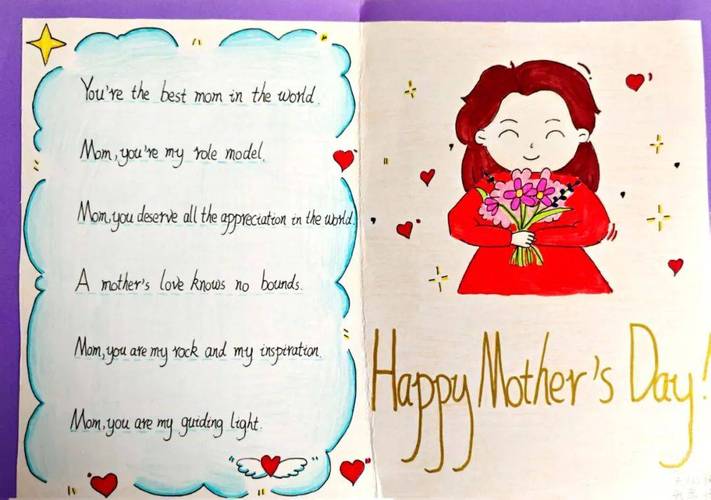 You're the best mom in the world.
Mom, you're my role model.
Mom, you deserve all the appreciation in the world.
A mother's love knows no bounds.
Mom, you are my rock and my inspiration.
Mom, you are my guiding light.
Happy Mother's Day!